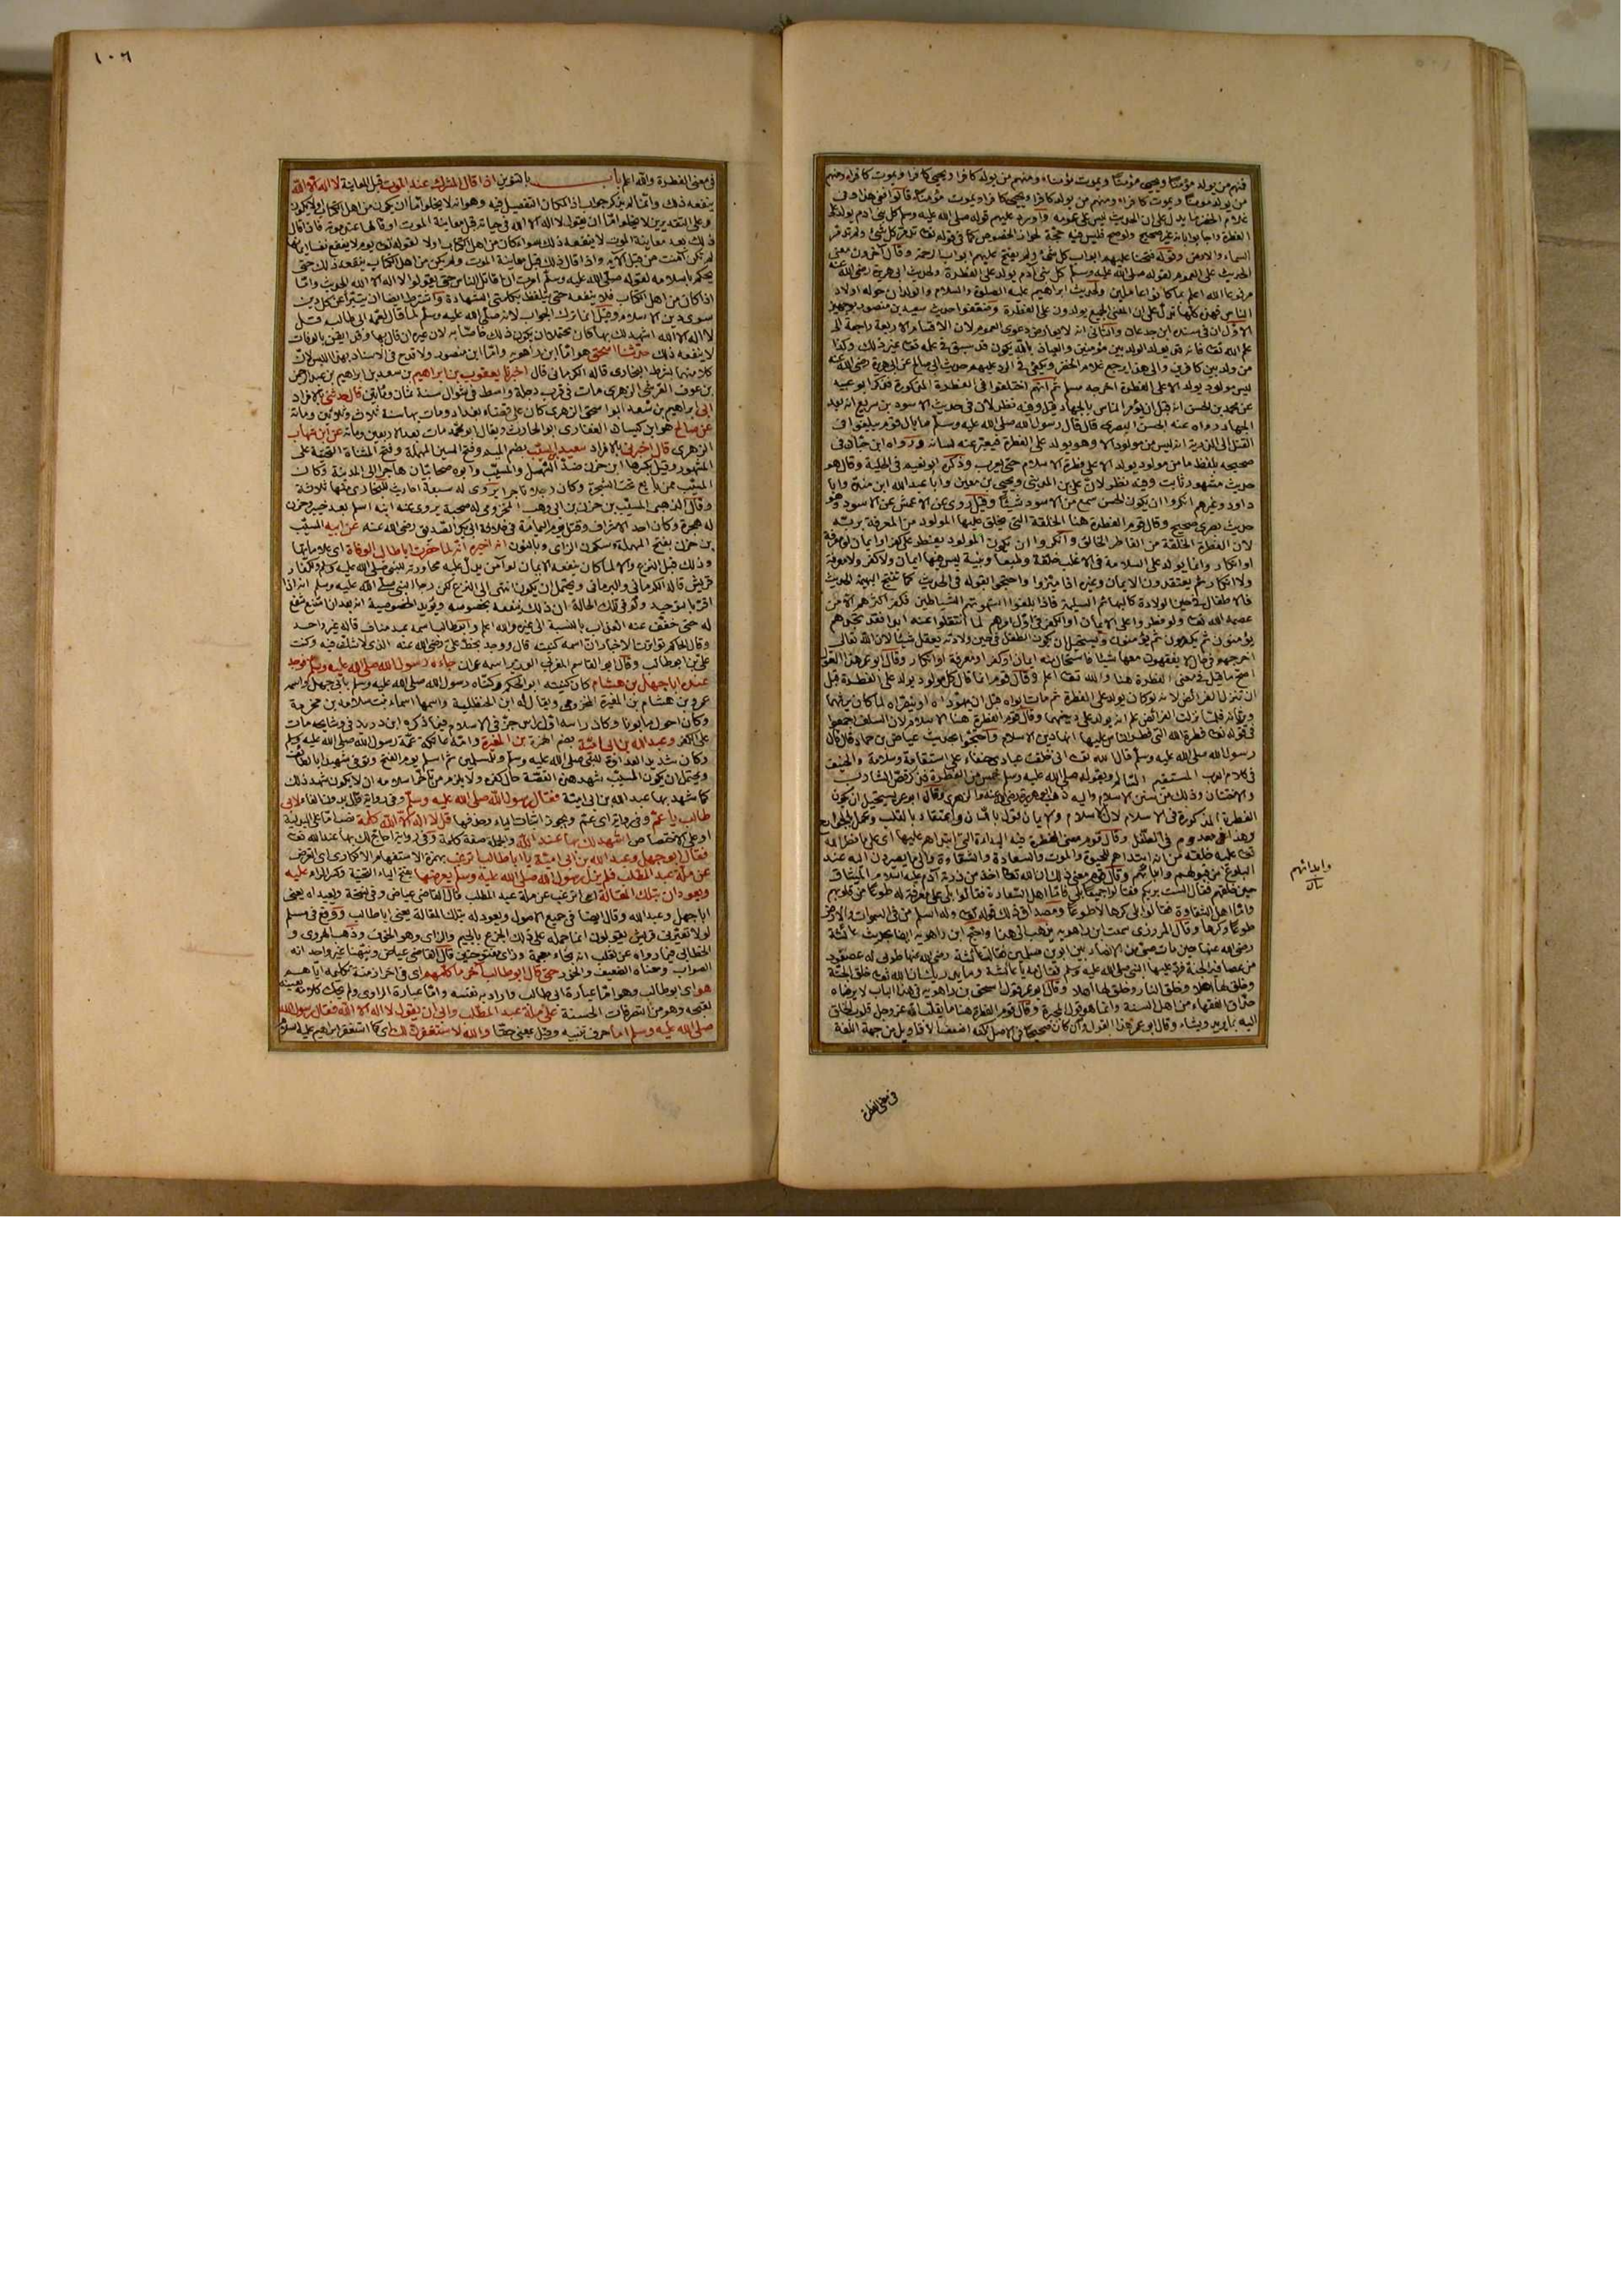 فمنهم من يولد مؤمنًا ويحيى مؤمنًا ويموت مؤمنًا ومنهم من يولد كافرا ويحيى كافرا ويموت كافرا ومنهم
من يولد مؤمنًا ويموت كافرا ومنهم من يولد كافرا ويحيى كافرا ويموت مؤمنًا قالوا ففي هذا وفى
غلام الخضر ما يدل على ان الحديث ليس على عمومه واورد عليهم قوله صلى الله عليه وسلم كل بنى ادم يولد على
الفطرة واجابوا بانه غير صحيح ولو صح فليس فيه حجة لجواز الخصوص كما في قوله تعالى تدمر كل شئ ولم تدمر
السماء والارض وقوله فتحنا عليهم ابواب كل شئ ولم يفتح عليهم ابواب رحمة وقال آخرون معنى
الحديث على العموم لقوله صلى الله عليه وسلم كل بنى ادم يولد على الفطرة ولحديث ابى هريرة رضى الله عنه
مرفوعا الله اعلم بما كانوا عاملين ولحديث ابراهيم عليه الصلوة والسلام والولدان حوله اولاد
الناس فهذه كلها تدل على ان المعنى الجميع يولدون على الفطرة وضعفوا حديث سعيد بن منصور بوجهين
الاول ان في سنده ابن جدعان والثانى انه لا يعارض دعوى العموم لان الاقسام الاربعة راجعة الى
علم الله تعالى فانه قد يولد الولد بين مؤمنين والعياذ بالله يكون قد سبق في علمه تعالى غير ذلك وكذا
من ولد بين كافرين والى هذا يرجع غلام الخضر ويكفى في الرد عليهم حديث ابى صالح عن ابى هريرة رضى الله عنه
ليس مولود يولد الا على الفطرة اخرجه مسلم ثم انهم اختلفوا في الفطرة المذكورة فذكر ابو عبيد
عن محمد بن الحسن انه قبل ان يؤمر الناس بالجهاد قيل وفيه نظر لان في حديث الاسود بن سريع انه بعد
الجهاد رواه عنه الحسن البصرى قال قال رسول الله صلى الله عليه وسلم ما بال قوم يبلغوا فى
القتل الى الذرية انه ليس من مولود الا وهو يولد على الفطرة فيعبر عنه لسانه ورواه ابن حبان فى
صحيحه بلفظ ما من مولود يولد الا على فطرة الاسلام حتى يعرب وذكره ابو نعيم في الحلية وقال هو
حديث مشهور ثابت وفيه نظر لان على بن المدينى ويحيى بن معين وابا عبد الله ابن مندة وابا
داود وغيرهم انكروا ان يكون الحسن سمع من الاسود شيئًا وقيل روى عن الاعمش عن الاسود وهو
حديث بصرى صحيح وقال قوم الفطرة هنا الخلقة التى يخلق عليها المولود من المعرفة بربه
لان الفطرة الخلقة من الفاطر الخالق وانكروا ان يكون المولود يفطر على كفر او ايمان او معرفة
او انكار وانما يولد على السلامة في الاغلب خلقة وطبعا وبنية ليس معها ايمان ولا كفر ولا معرفة
ولا انكار ثم يعتقدون الايمان وغيره اذا ميزوا واحتجوا بقوله في الحديث كما تنتج البهيمة الحديث
فالاطفال في حين الولادة كالبهائم السليمة فاذا بلغوا استهوتهم الشياطين فكفر اكثرهم الا من
عصمه الله تعالى ولو فطروا على الايمان او الكفر في اول امرهم لما انتقلوا عنه ابدا فقد تجدهم
يؤمنون ثم يكفرون ثم يؤمنون ويستحيل ان يكون الطفل في حين ولادته يعقل شيئًا لان الله تعالى
اخرجهم في حال لا يفقهون معها شيئا فاستحال منه ايمان او كفر او معرفة او انكار وقال ابو عمر هذا القول
اصح ما قيل في معنى الفطرة هنا والله تعالى اعلم وقال قوم انما قال كل مولود يولد على الفطرة قبل
ان تنزل الفرائض لانه لو كان يولد على الفطرة ثم مات ابواه قبل ان يهودانه او ينصرانه لما كان يرثهما
ويرثانه فلما نزلت الفرائض علم انه يولد على دينهما وقال قوم الفطرة هنا الاسلام لان السلف اجمعوا
في قوله تعالى فطرة الله التى فطر الناس عليها انها دين الاسلام واحتجوا بحديث عياض بن حماد قال قال
رسول الله صلى الله عليه وسلم قال الله تعالى انى خلقت عبادى حنفاء على استقامة وسلامة والحنيف
في كلام العرب المستقيم السالم وبقوله صلى الله عليه وسلم خمس من الفطرة فذكر قص الشارب
والاختتان وذلك من سنن الاسلام واليه ذهب ابو هريرة رضى الله عنه والزهرى وقال ابو عمر يستحيل ان تكون
الفطرة المذكورة في الاسلام لان الاسلام والايمان قول باللسان واعتقاد بالقلب وعمل بالجوارح
وهذا معدوم في الطفل وقال قوم معنى الفطرة فيه البداءة التى ابتداهم عليها اى على ما فطر الله
تعالى عليه خلقه من انه ابتداهم للحيوة والموت والسعادة والشقاوة والى ما يصيرون اليه عند
البلوغ من قبولهم وابائهم وقال قوم معنى ذلك ان الله تعالى اخذ من ذرية آدم عليه السلام الميثاق
حين خلقهم فقال الست بربكم فقالوا جميعًا بلى فاما اهل السعادة فقالوا بلى على معرفة له طوعًا من قلوبهم
واما اهل الشقاوة فقالوا بلى كرها لا طوعًا ومصداق ذلك قوله تعالى وله اسلم من فى السموات والارض
طوعًا وكرها وقال المروزى سمعت ابن راهويه يذهب الى هذا واحتج ابن راهويه ايضا بحديث عائشة
رضى الله عنها حين مات صبى من الانصار بين ابوين مسلمين فقالت عائشة رضى الله عنها طوبى له عصفور
من عصافير الجنة فرد عليها النبى صلى الله عليه وسلم فقال مه يا عائشة وما يدريك ان الله تعالى خلق الجنة
وخلق لها اهلا وخلق النار وخلق لها اهلا وقال ابو عمر قول اسحق بن راهويه في هذا الباب لا يرضاه
حذاق الفقهاء من اهل السنة وانما هو قول المجبرة وقال قوم الفطرة هنا ما يقلب الله عز وجل قلوب الخلق
اليه بما يريد ويشاء وقال ابو عمر هذا القول وان كان صحيحًا في الاصل لكنه اضعف الاقاويل من جهة اللغة
وابدائهم
في معنى الفطرة
١٠٦
في معنى الفطرة والله اعلم باب بالتنوين اذا قال المشرك عند الموت قبل المعاينة لا اله الا الله
ينفعه ذلك وانما لم يذكر جواب اذا لمكان التفصيل فيه وهو انه لا يخلو اما ان يكون من اهل الكتاب او لا يكون
وعلى التقديرين لا يخلو اما ان يقول لا اله الا الله في حياته قبل معاينة الموت او قالها عند موته فاذا قال
ذلك بعد معاينة الموت لا ينفعه ذلك سواء كان من اهل الكتاب او لا لقوله تعالى يوم لا ينفع نفسا ايمانها
لم تكن آمنت من قبل الآية واذا قال ذلك قبل معاينة الموت ولم يكن من اهل الكتاب ينفعه ذلك حتى
يحكم باسلامه لقوله صلى الله عليه وسلم امرت ان اقاتل الناس حتى يقولوا لا اله الا الله الحديث واما
اذا كان من اهل الكتاب فلا ينفعه حتى يتلفظ بكلمتى الشهادة واشترط ايضا ان يتبرأ عن كل دين
سوى دين الاسلام وقيل انما ترك الجواب لانه صلى الله عليه وسلم لما قال لعمه ابى طالب قل
لا اله الا الله اشهد لك بها كان محتملا ان يكون ذلك خاصًا به لان غيره ان قال بها وقد ايقن بالوفات
لا ينفعه ذلك حدثنا اسحق هو اما ابن راهويه واما ابن منصور ولا قدح في الاسناد بهذا اللبس لان
كلا منهما بشرط البخارى قاله الكرمانى قال اخبرنا يعقوب بن ابراهيم بن سعد بن ابراهيم بن عبد الرحمن
بن عوف القرشى الزهرى مات في قرب دجلة واسط في شوال سنة ثمان ومأتين قال حدثنى بالافراد
ابى ابراهيم بن سعد ابو اسحق الزهرى كان على قضاء بغداد ومات بها سنة ثلاث وثمانين ومائة
عن صالح هو ابن كيسان الغفارى ابو الحارث ويقال ابو محمد مات بعد الاربعين ومائة عن ابن شهاب
الزهرى قال اخبرنى بالافراد سعيد بن المسيب بضم الميم وفتح السين المهملة وفتح المثناة التحتية على
المشهور وقيل بكسرها ابن حزن ضد السهل والمسيب وابوه صحابيان هاجرا الى المدينة وكان
المسيب ممن بايع تحت الشجرة وكان رجلا تاجرا يروى له سبعة احاديث للبخارى منها ثلاثة
وقال الذهبى المسيب بن حزن بن ابى وهب المخزومى له صحبة يروى عنه ابنه اسلم بعد خيبر وحزن
له هجرة وكان احد الاشراف وقتل يوم اليمامة في خلافة ابى بكر الصديق رضى الله عنه عن ابيه المسيب
بن حزن بفتح المهملة وسكون الزاى وبالنون انه اخبره انه لما حضرت ابا طالب الوفاة اى علاماتها
وذلك قبل النزع والا لما كان ينفعه الايمان لو آمن يدل عليه محاورته للنبى صلى الله عليه وسلم ولكفار
قريش قاله الكرمانى والبرماوى ويحتمل ان يكون انتهى الى النزع لكن رجا النبى صلى الله عليه وسلم انه اذا
اقر بالتوحيد ولو في تلك الحالة ان ذلك ينفعه بخصوصه ويؤيد الخصوصية انه بعد ان امتنع شفع
له حتى خفف عنه العذاب بالنسبة الى غيره والله اعلم وابو طالب اسمه عبد مناف قاله غير واحد
وقال الحاكم تواترت الاخبار ان اسمه كنيته قال ووجد بخط على رضى الله عنه الذى لا شك فيه وكتب
على بن ابو طالب وقال ابو القاسم المغربى الوزير اسمه عمران جاءه رسول الله صلى الله عليه وسلم فوجد
عنده ابا جهل بن هشام كان كنيته ابو الحكم وكناه رسول الله صلى الله عليه وسلم بابى جهل واسمه
عمرو بن هشام بن المغيرة المخزومى ويقال له ابن الحنظلية واسمها اسماء بنت سلامة بن مخرمة
وكان احول مأبونا وكان راسه اول راس حز في الاسلام فيما ذكره ابن دريد في وشايحه مات
على الكفر وعبد الله بن ابى امية بضم الهمزة بن المغيرة وامه عاتكة عمة رسول الله صلى الله عليه وسلم
وكان شديد العداوة للنبى صلى الله عليه وسلم وللمسلمين ثم اسلم يوم الفتح وتوفى شهيدا بالطائف
ويحتمل ان يكون المسيب شهد هذه القصة حال كفره ولا يلزم من تأخر اسلامه ان لا يكون شهد ذلك
كما شهد بها عبد الله بن ابى امية فقال رسول الله صلى الله عليه وسلم وفى رواية قال بدون الفاء لابى
طالب يا عم وفى رواية اى عم ويجوز اثبات الياء وحذفها قل لا اله الا الله كلمة نصب اما على البدلية
او على الاختصاص اشهد لك بها عند الله والجملة صفة كلمة وفى رواية احاج لك بها عند الله تعالى
فقال ابو جهل وعبد الله بن ابى امية يا ابا طالب اترغب بهمزة الاستفهام الانكارى اى اتعرض
عن ملة عبد المطلب فلم يزل رسول الله صلى الله عليه وسلم يعرضها بفتح الياء التحتية وكسر الراء عليه
ويعودان بتلك المقالة اى اترغب عن ملة عبد المطلب قال القاضى عياض وفى نسخة ويعيدانه يعنى
ابا جهل وعبد الله وقال ايضا في جميع الاصول ويعود له بتلك المقالة يعنى ابا طالب ووقع في مسلم
لولا تعيرنى قريش يقولون انما حمله على ذلك الجزع بالجيم والزاى وهو الخوف وذهب الهروى و
الخطابى فيما رواه عن ثعلب انه بخاء معجمة وراى مفتوحتين قال القاضى عياض ونبهنا غير واحد انه
الصواب ومعناه الضعيف والخور حتى قال ابو طالب آخر ما كلمهم اى في آخر ازمنة تكليمه اياهم
هو اى ابو طالب وهو اما عبارة ابى طالب واراد به نفسه واما عبارة الراوى ولم يحك كلامه بعينه
لقبحه وهو من التصرفات الحسنة على ملة عبد المطلب وابى ان يقول لا اله الا الله فقال رسول الله
صلى الله عليه وسلم اما حرف تنبيه وقيل بمعنى حقًا والله لاستغفرن لك اى كما استغفر ابراهيم عليه السلام